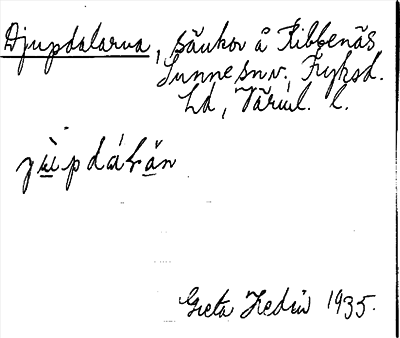 Djupdalarna, sänkor å Ribbenäs
Sunne sn v. Fryksd.
hd, Värml. l.
jùpdáɽän
Greta Hedin 1935.